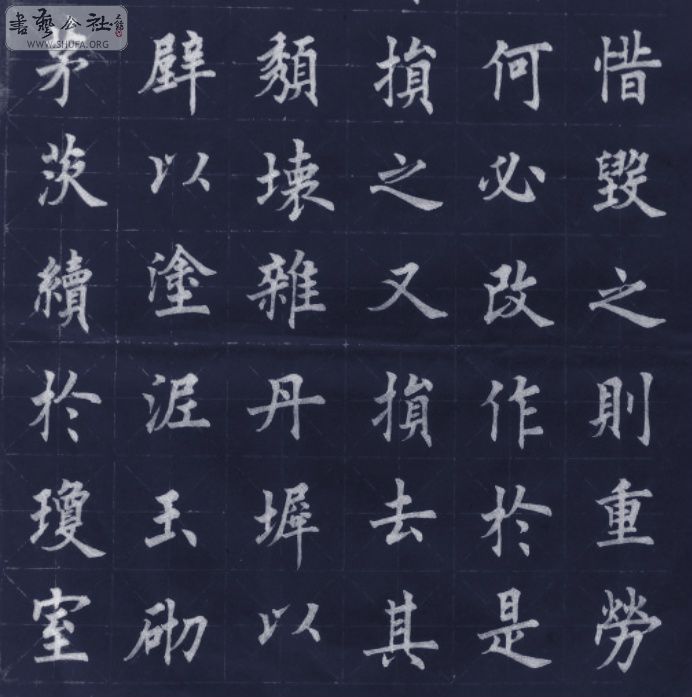 惜毀之則重勞
何必改作於是
損之又損去其
頹壞雜丹墀以
壁以塗泥玉砌
茅茨續於瓊室
書藝公社
WWW.SHUFA.ORG